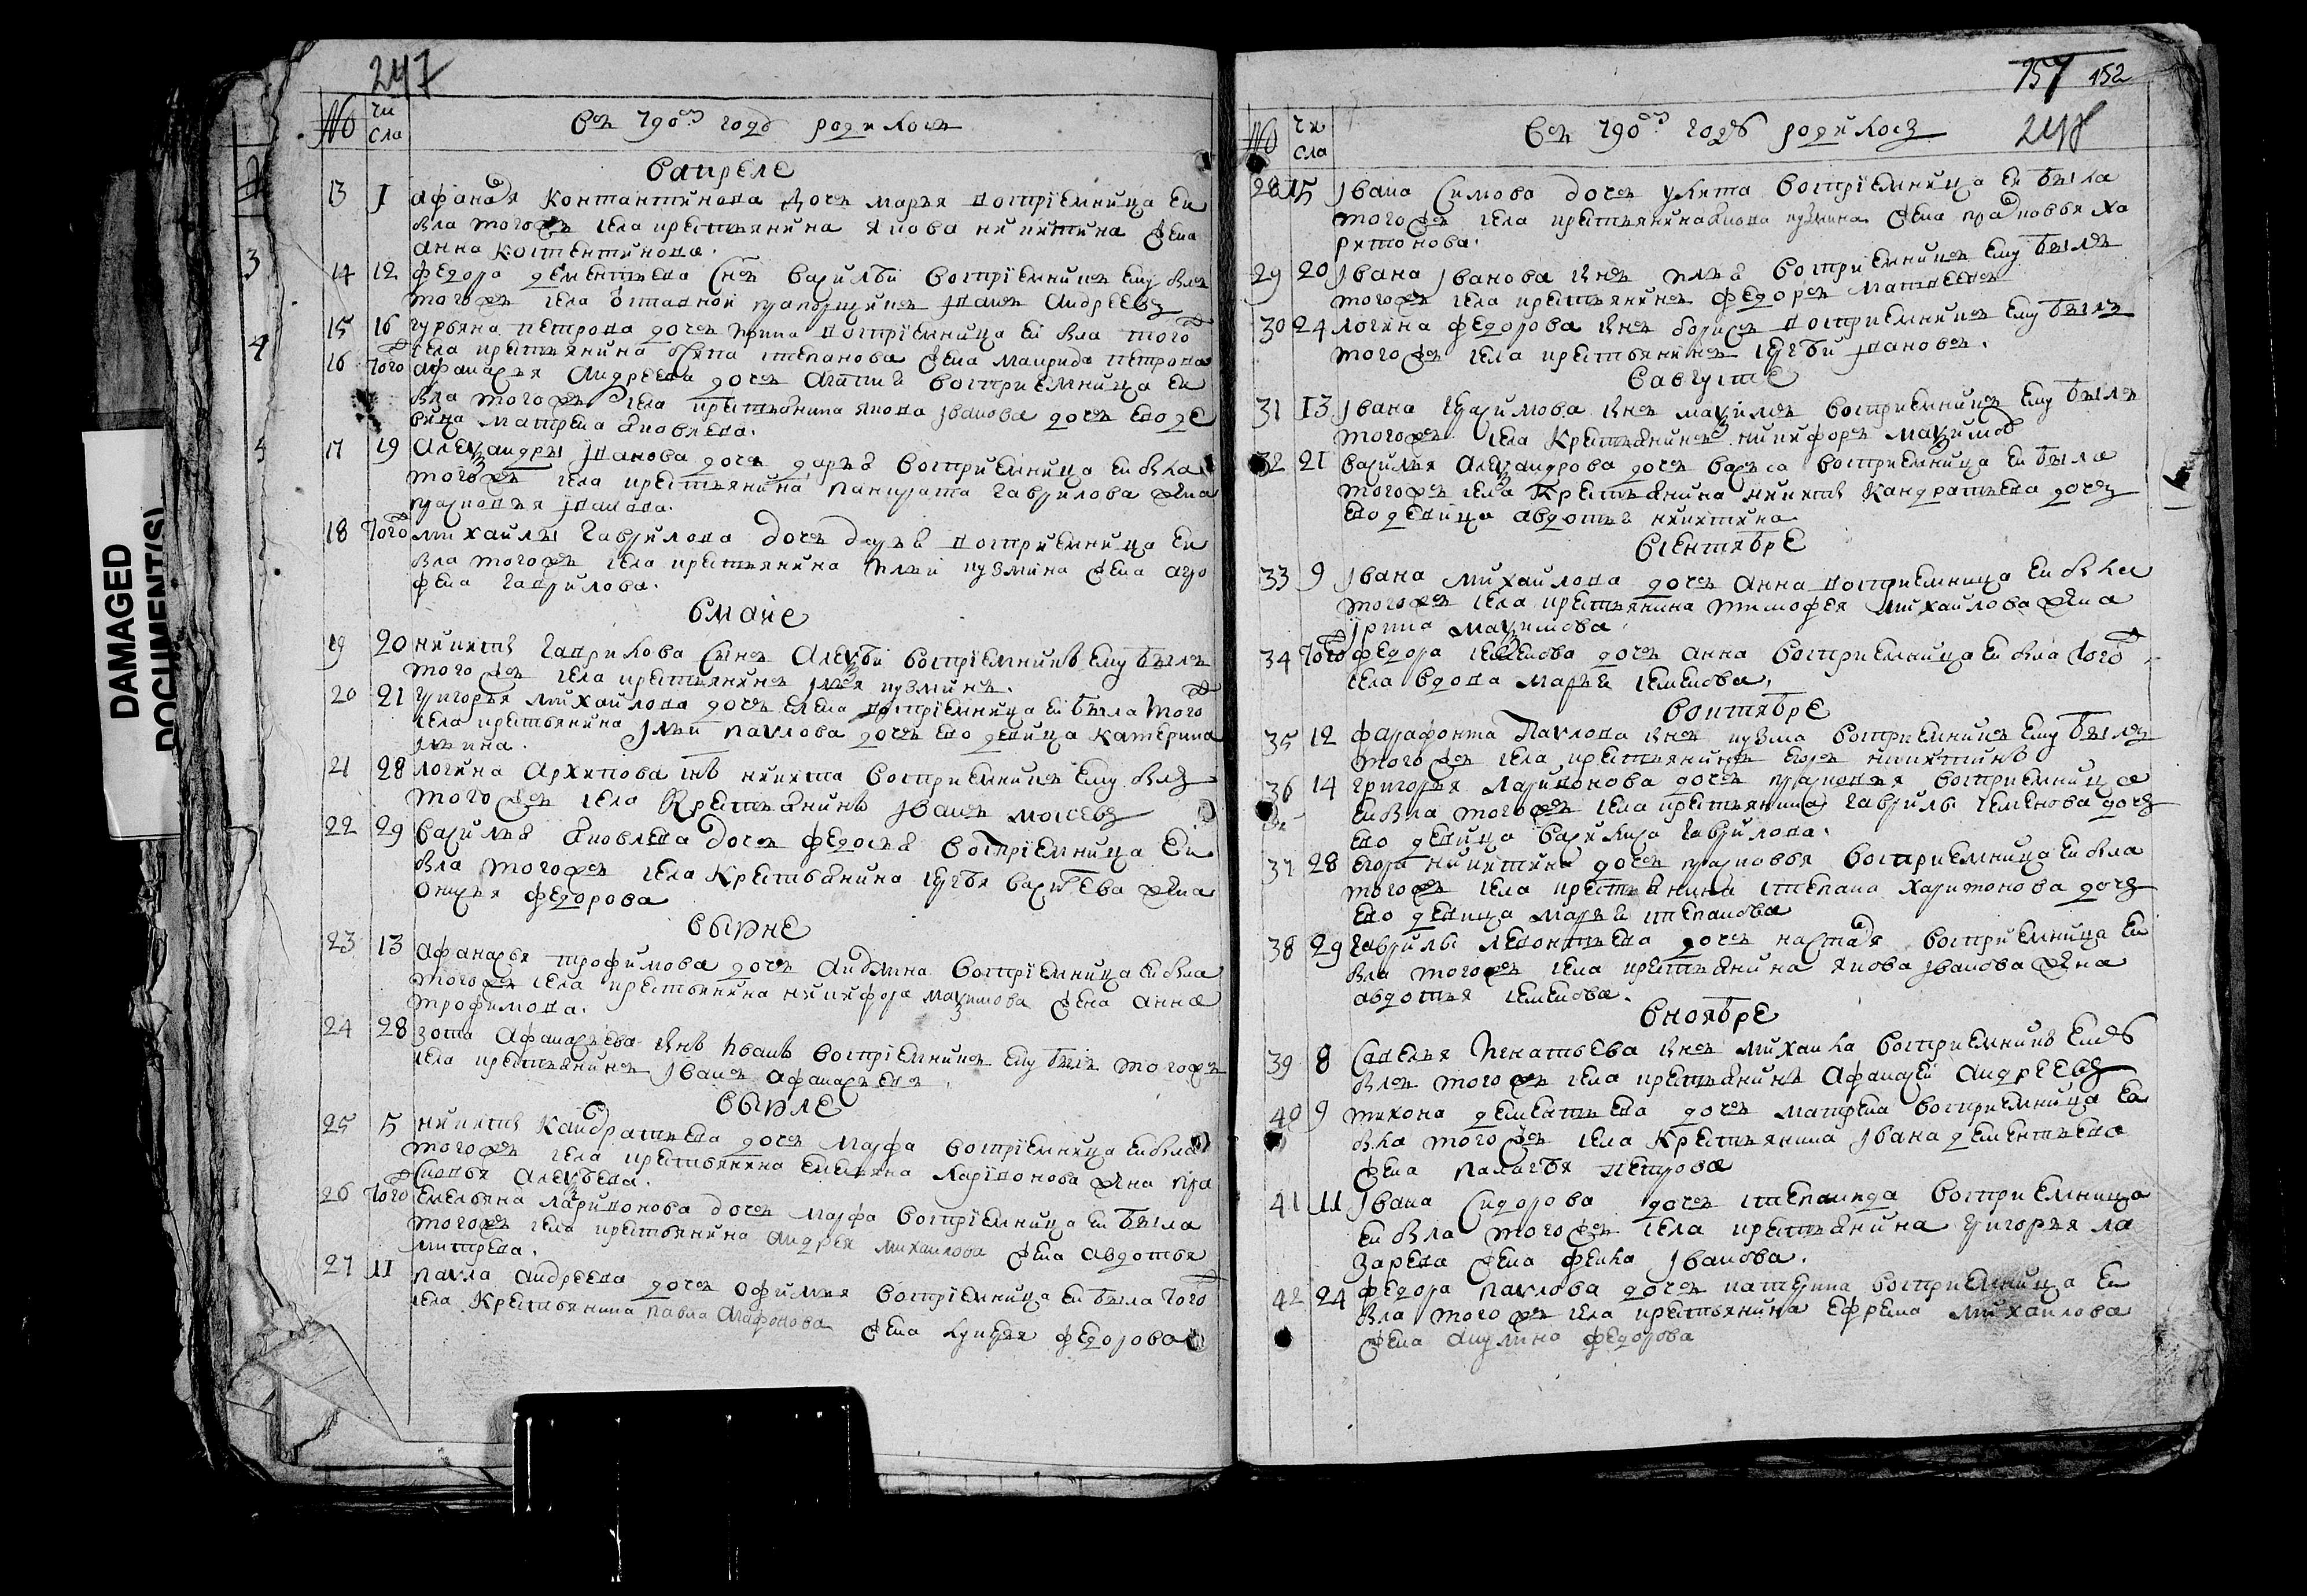 247
№ чи сла Въ 790м году родилось
В апреле
13 1 Афанасья Контантинова дочь марья восприемница ей
была тогожъ села крестьянина якова никитина жена
анна костентинова.
14 12 федора дементьева снъ василей восприемникъ ему былъ
тогожъ села отставной Иванъ Андреевъ
15 16 гурьяна петрова дочь ирина восприемница ей была того
села крестьянина степанова жена маврида петрова
16 того Афанасья Андреева дочь Агафия восприемница ей
была тогожъ села крестьянина якова иванова дочь ево де
вица матрена
17 19 Александры иванова дочь дарья восприемница ей была
тогожъ села крестьянина панкрата гаврилова жена
прасковья иванова.
18 того михайлы гаврилова дочь дарья восприемница ей
была тогожъ села крестьянина ильи кузмина жена агро
фена гаврилова.
в маие
19 20 никиты гаврилова сынъ Алексей восприемникъ ему былъ
тогожъ села крестьянинъ илья кузминъ.
20 21 григорья михайлова дочь елена восприемница ей была того
села крестьянина ильи павлова дочь ево девица катерина
ильина.
21 28 логина Архипова снъ никита восприемникъ ему былъ
тогожъ села крестьянинъ Иванъ мосеевъ
22 29 василья яковлева дочь федосья восприемница ей
была тогожъ села крестьянина сергея васильева жена
федорова
в июне
23 13 афанасья трофимова дочь акулина восприемница ей была
тогожъ села крестьянина никифора максимова жена анна
трофимова.
24 28 зота Афанасьева снъ иванъ восприемникъ ему былъ тогожъ
села крестьянинъ иванъ афанасьевъ.
в июле
25 5 никиты кандратьева дочь марфа восприемница ей была
тогожъ села крестьянина емельяна ларионова жена пра
сковья Алексеева.
26 того емельяна ларионова дочь марфа восприемница ей была
тогожъ села крестьянина андрея михайлова жена авдотья
митрева.
27 11 павла андреева дочь офимья восприемница ей была того
села крестьянина павла жена лукерья федорова
157 152
248
№ чи сла Въ 790м году родилось
28 15 Ивана Симова дочь улита восприемница ей была
тогожъ села крестьянина якова кузмина жена прасковья ха
ритонова.
29 20 Ивана Иванова снъ илья восприемникъ ему былъ
тогожъ села крестьянинъ федоръ матвеевъ
30 24 логина федорова снъ борисъ восприемникъ ему былъ
тогожъ села крестьянинъ сергей ивановъ.
в августе
31 13 Ивана снъ максимъ восприемникъ ему былъ
тогожъ села крестьянинъ никифоръ максимов
32 21 василья Александрова дочь васса восприемница ей была
тогожъ села крестьянина никиты кандратьева дочь
ево девица авдотья никитина
в сентябре
33 9 Ивана михайлова дочь анна восприемница ей была
тогожъ села крестьянина тимофея михайлова жена
ирина максимова.
34 того федора семенова дочь анна восприемница ей была того
села вдова марья семенова.
в октябре
35 12 фарафонта павлова снъ кузма восприемникъ ему былъ
тогожъ села крестьянинъ егоръ никитинъ
36 14 григорья ларионова дочь прасковья восприемница
ей была тогожъ села крестьянина гаврилы семенова дочь
ево девица василиса гаврилова.
37 28 егора никитина дочь прасковья восприемница ей была
тогожъ села крестьянина степана харитонова дочь
ево девица марья степанова
38 29 гаврилы леонтьева дочь настасья восприемница ей
была тогожъ села крестьянина якова иванова жена
авдотья семенова.
в ноябре
39 8 савелья игнатьева снъ михаила восприемникъ ему
былъ тогожъ села крестьянинъ афанасей андреевъ
40 9 тихона дементьева дочь матрена восприемница ей
была тогожъ села крестьянина ивана дементьева
жена палагея петрова
41 11 Ивана Сидорова дочь степанида восприемница
ей была тогожъ села крестьянина григорья ла
зарева жена фекла иванова.
42 24 федора павлова дочь катерина восприемница ей
была тогожъ села крестьянина ефрема михайлова
жена акулина федорова
3
4
5
DAMAGED
DOCUMENT(S)